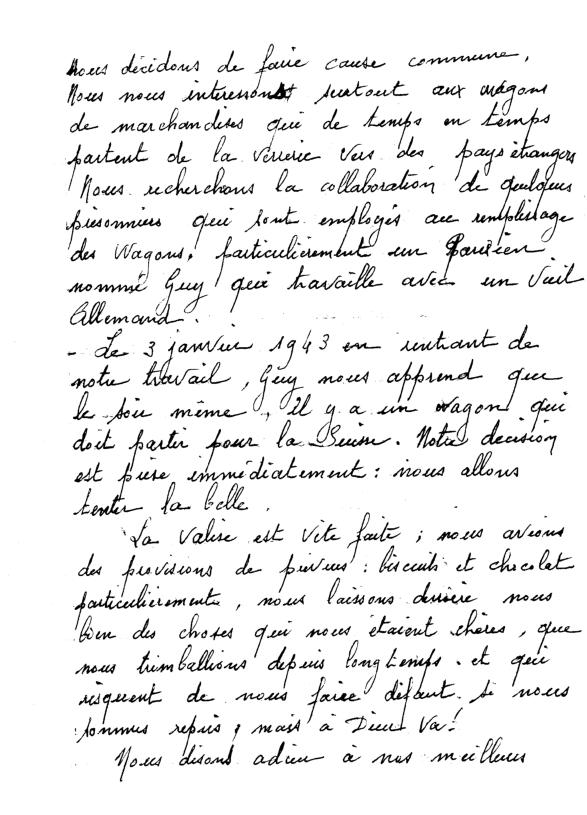 nous décidons de faire cause commune,
Nous nous interessons surtout aux wagons
de marchandises qui de temps en temps
partent de la verrerie vers des pays étrangers
Nous recherchons la collaboration de quelques
prisonniers qui sont employés au remplissage
des Wagons, particulièrement un Parisien
nommé Guy qui travaille avec un vieil
Allemand.
- Le 3 janvier 1943 en rentrant de
notre travail, Guy nous apprend que
le soir même, il y a un wagon qui
doit partir pour la Suisse. Notre decision
est prise immédiatement : nous allons
tenter la belle.
La Valise est vite faite ; nous avions
des provisions de prévues : biscuits et chocolat
particulièrement, nous laissons derrière nous
bien des choses qui nous étaient chères, que
nous trimballions depuis longtemps. et qui
risquent de nous faire défaut. si nous
sommes repris, mais à Dieu Va!
Nous disons adieu à nos meilleurs